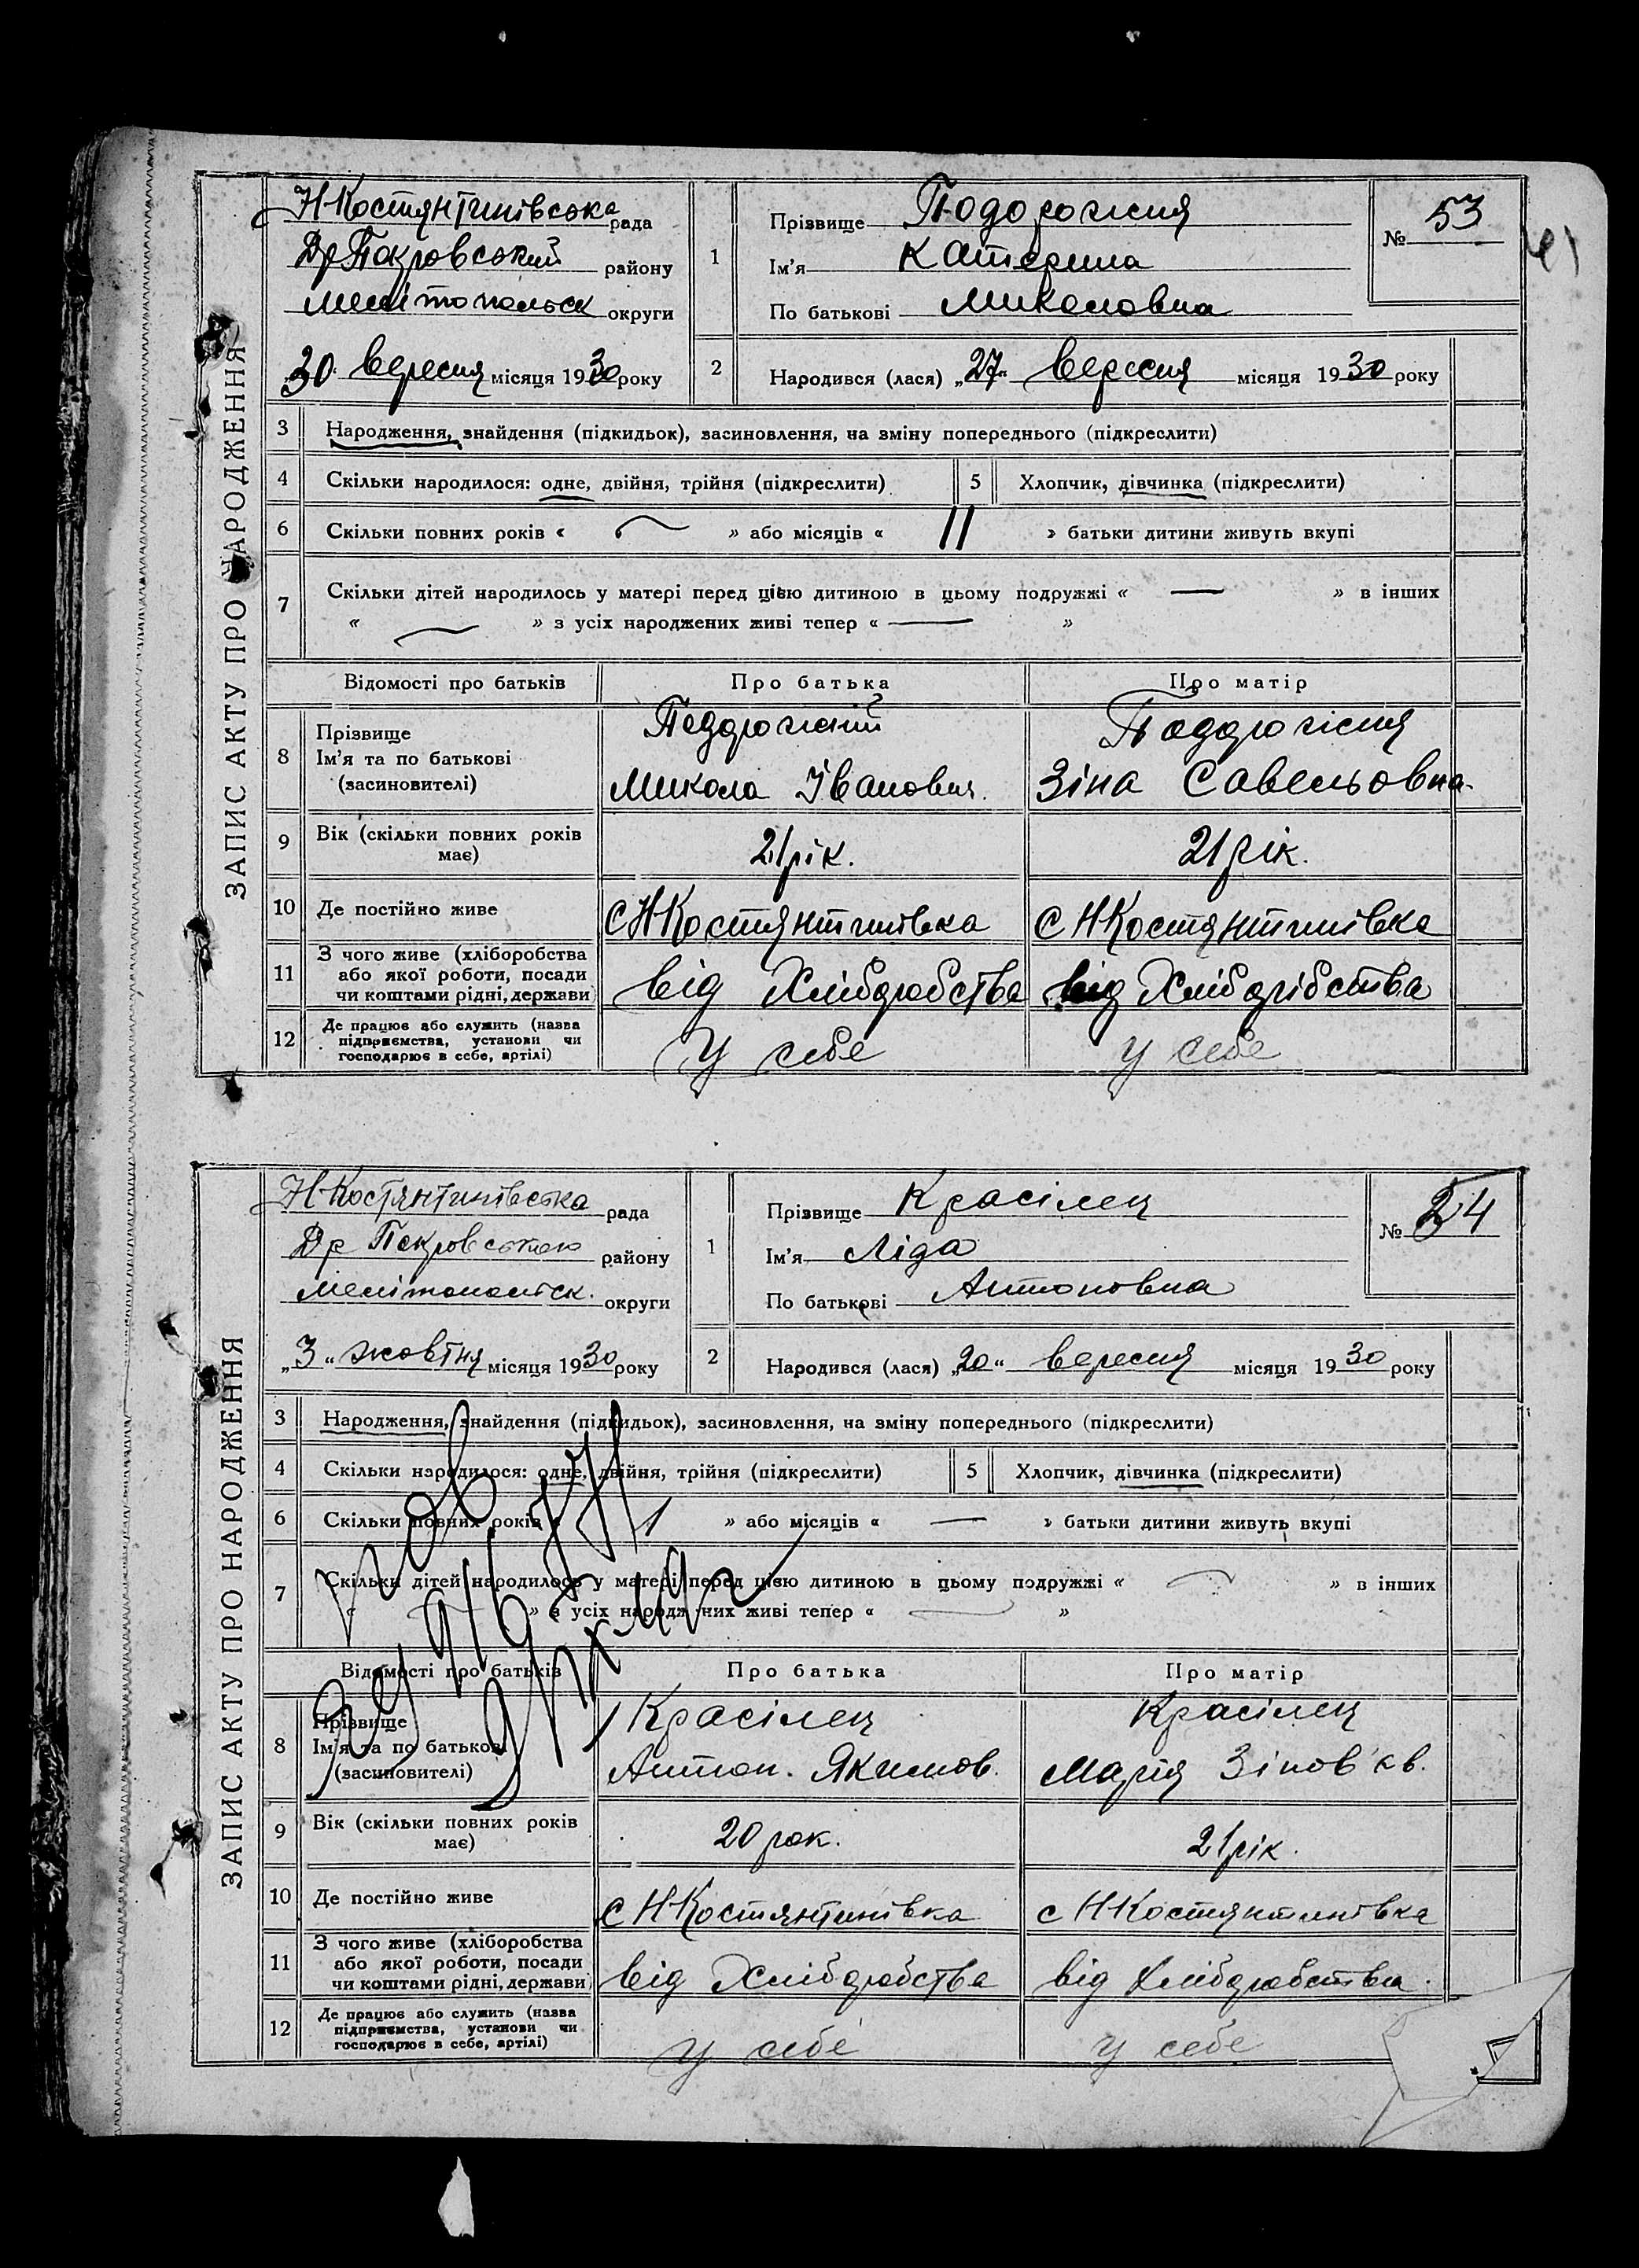 ЗАПИС АКТУ ПРО НАРОДЖЕННЯ
Н-Костянтинівська рада
Др Покровський району
Мелітопольск округи
30 вересня місяця 1930 року
1
Прізвище Подорожня
Ім'я Катерина
По батькові Миколовна
№ 53
2
Народився (лася) „27“ вересня місяця 1930 року
3 Народження, знайдення (підкидьок), засиновлення, на зміну попереднього (підкреслити)
4 Скільки народилося: одне, двійня, трійня (підкреслити) 5 Хлопчик, дівчинка (підкреслити)
6 Скільки повних років « — » або місяців « 11 » батьки дитини живуть вкупі
7 Скільки дітей народилось у матері перед цією дитиною в цьому подружжі « — » в інших
« — » з усіх народжених живі тепер « — »
Відомості про батьків Про батька Про матір
8 Прізвище
Ім'я та по батькові
(засиновителі)
Микола Іванович
Зіна Савельовна
9 Вік (скільки повних років
має)
21 рік. 21 рік.
10 Де постійно живе с НКостянтинівка с НКостянтинівка
11 З чого живе (хліборобства
або якої роботи, посади
чи коштами рідні, держави)
від Хлібдробства від Хлібдрібства
12 Де працює або служить (назва
підприємства, установи чи
господарює в себе, артілі)
у себе у себе
ЗАПИС АКТУ ПРО НАРОДЖЕННЯ
Н-Костянтинівська рада
Др Покровською району
Мелітопольск. округи
„3“ жовтня місяця 1930 року
1
Прізвище Красілец
Ім'я Ліда
По батькові Антоновна
№ 54
2
Народився (лася) „20“ вересня місяця 1930 року
3 Народження, знайдення (підкидьок), засиновлення, на зміну попереднього (підкреслити)
4 Скільки народилося: одне, двійня, трійня (підкреслити) 5 Хлопчик, дівчинка (підкреслити)
6 Скільки повних років « 1 » або місяців « — » батьки дитини живуть вкупі
7 Скільки дітей народилось у матері перед цією дитиною в цьому подружжі « — » в інших
« — » з усіх народжених живі тепер « — »
Відомості про батьків Про батька Про матір
8 Прізвище
Ім'я та по батькові
(засиновителі)
Красілец
Антон. Якимов.
Красілец
Марія Зінов'єв.
9 Вік (скільки повних років
має)
20 рок. 21 рік.
10 Де постійно живе с НКостянтинівка с НКостянтинівка
11 З чого живе (хліборобства
або якої роботи, посади
чи коштами рідні, держави)
від Хлібдробства від Хлібдробства.
12 Де працює або служить (назва
підприємства, установи чи
господарює в себе, артілі)
у себе у себе